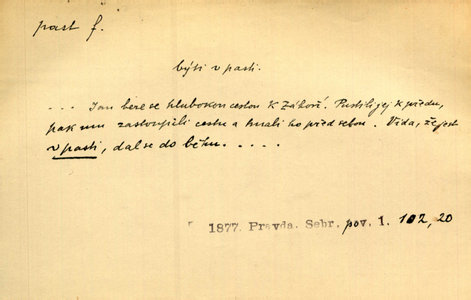 past f.
býti v pasti.
... Jan bere se hlubokou cestou k Záhoří. Pustili jej k předu,
pak mu zastoupili cestu a hnali ho před sebou. Vida, že jest
v pasti, dal se do běhu. . . . .
1877. Pravda. Sebr. pov. 1. 102, 20